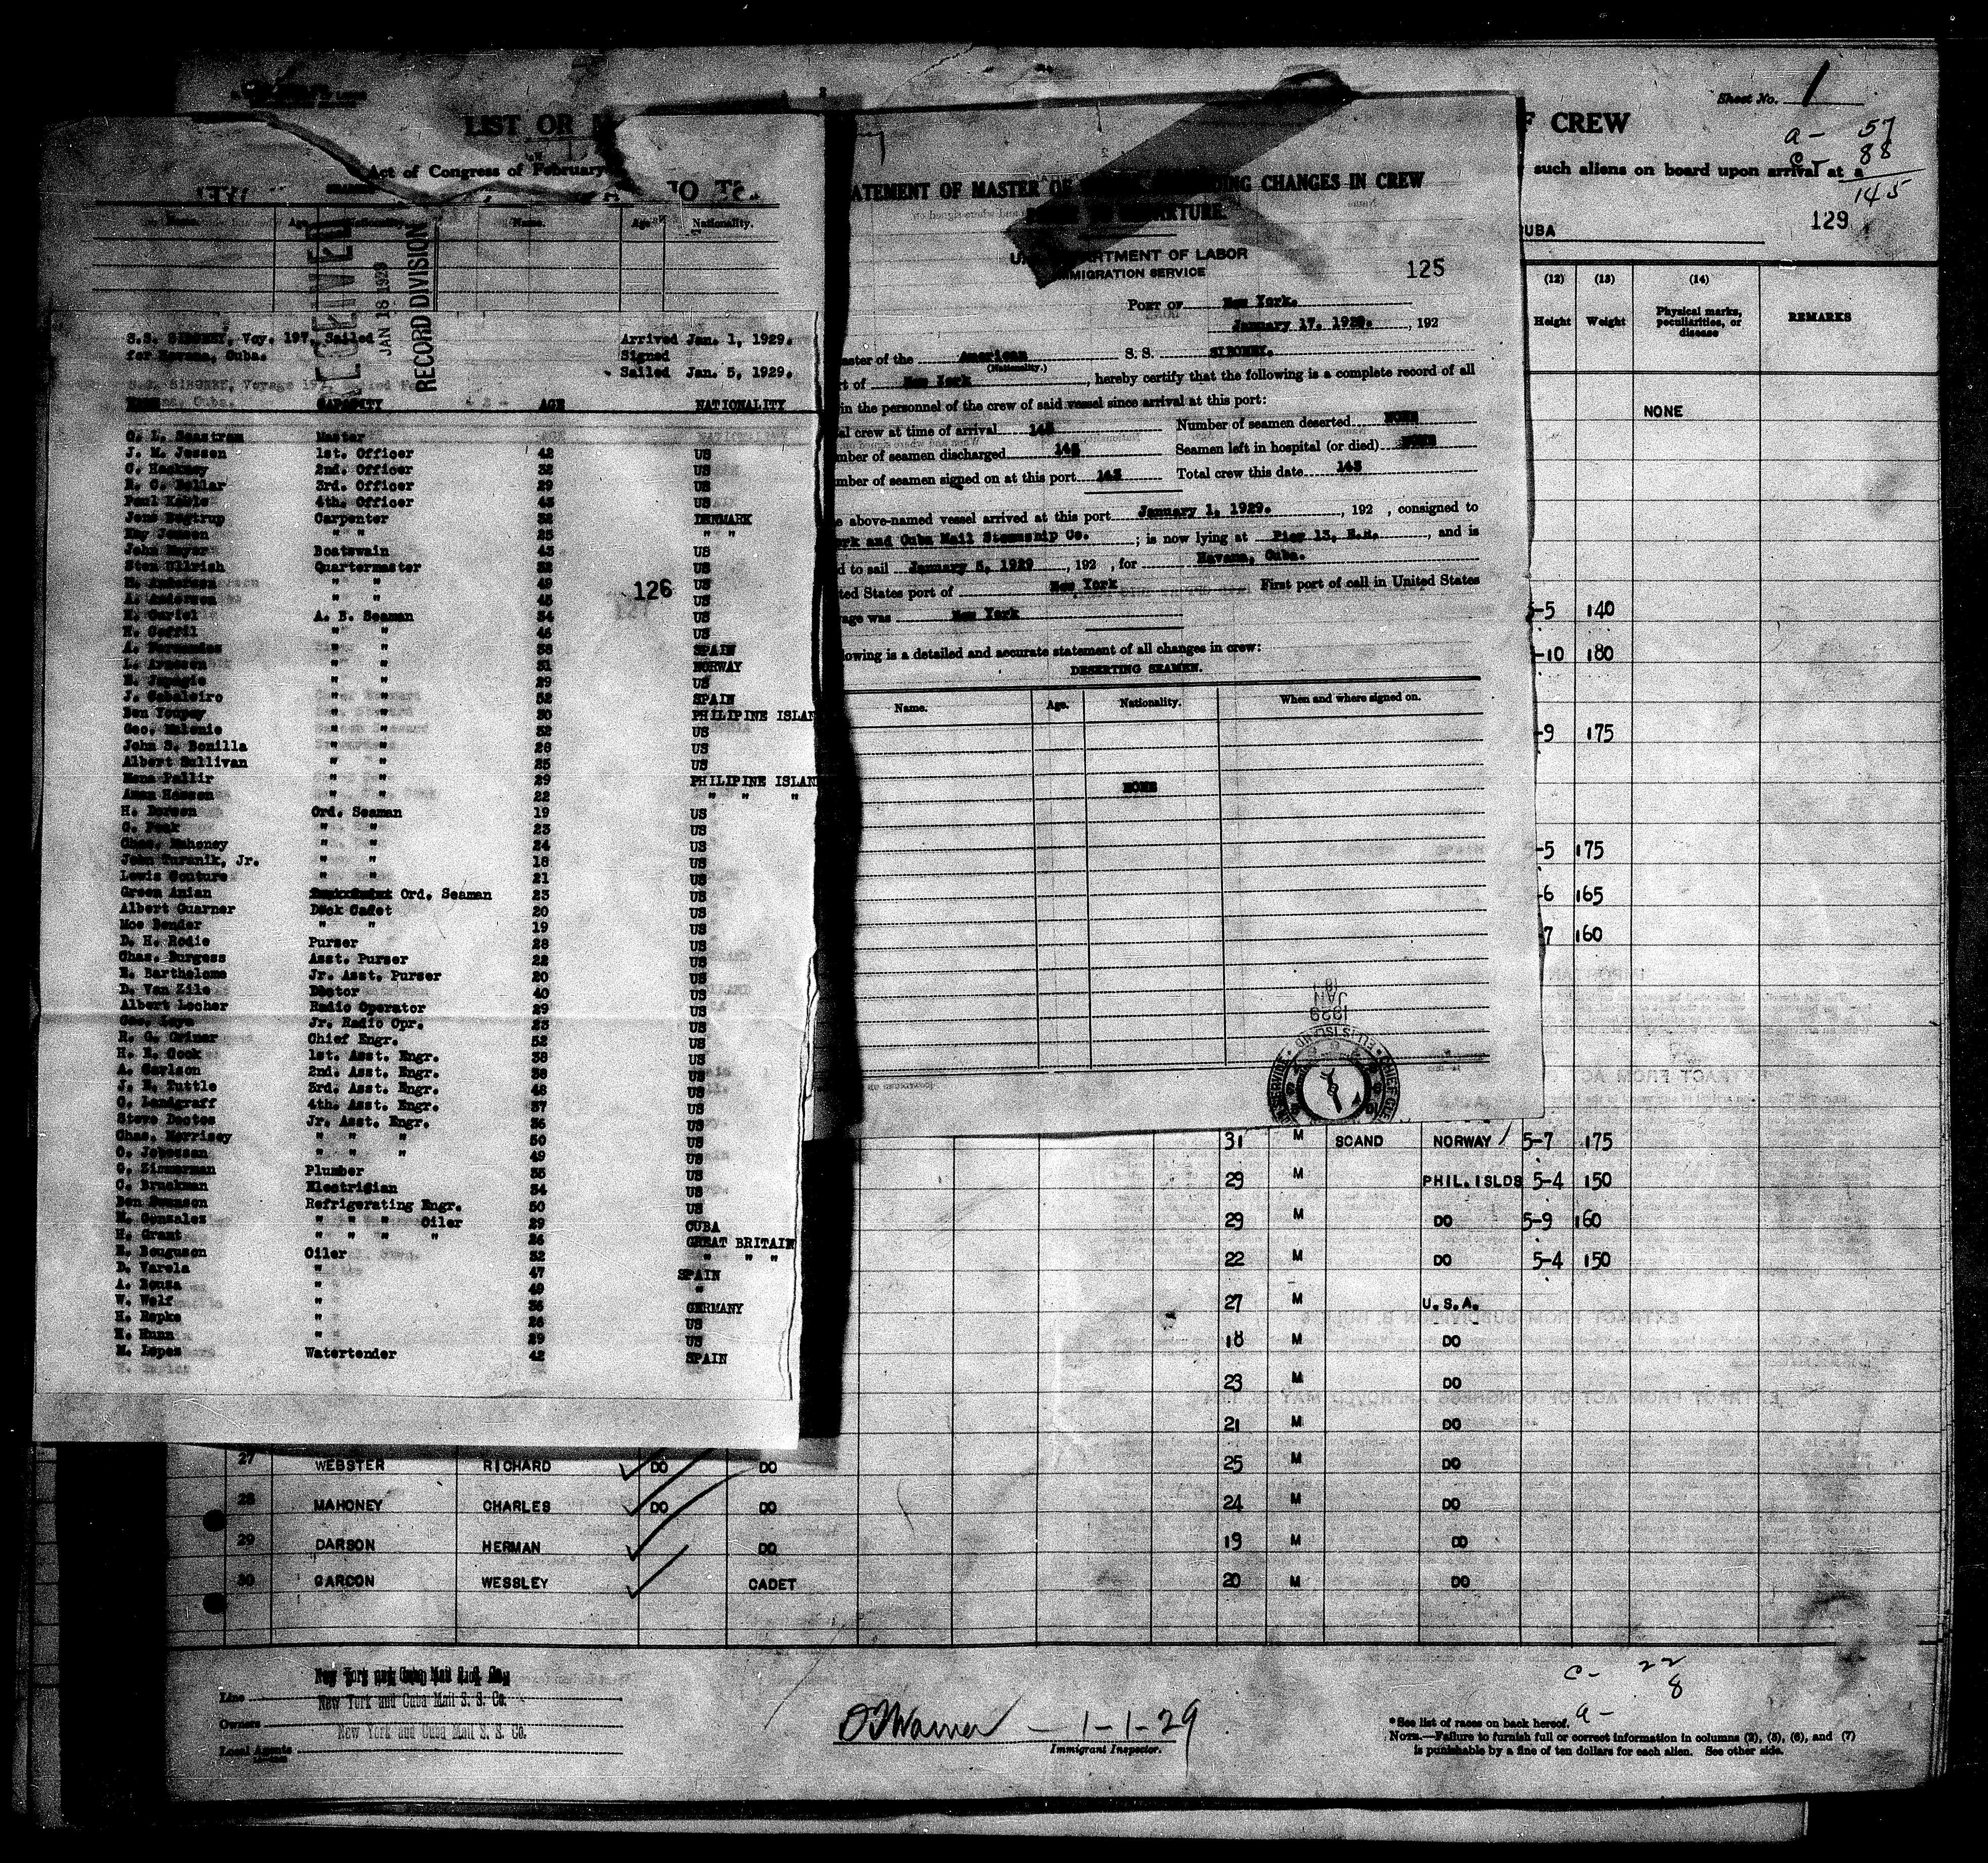 Sheet No. 1
LIST OR
F CREW
a- 57
88
145
Act of Congress of February
such aliens on board upon arrival at a
129
UBA
Name. Age Nationality. Name. Age Nationality.
RECEIVED
JAN 18 1929
RECORD DIVISION
S.S. SIBONEY, Voy. 197, Sailed
for Havana, Cuba.
Arrived Jan. 1, 1929.
Signed
Sailed Jan. 5, 1929.
NAME CAPACITY AGE NATIONALITY
C. L. Seastrom Master
J. M. Jessen 1st. Officer 42 US
C. Hackney 2nd. Officer 32 US
R. C. Hellar 3rd. Officer 29 US
Paul Keble 4th. Officer 43 US
Jens Bagtrup Carpenter 32 DENMARK
Kay Jensen " " 25 " "
John Meyer Boatswain 43 US
Sten Ullrish Quartermaster 32 US
H. Anderson " " 49 US
A. Andersen " " 45 US
126
A. B. Seaman 34 US
" " 46 US
A. Fernandez " " 38 SPAIN
" " 31 NORWAY
" " 29 US
J. Cabaleiro " " 52 SPAIN
Ben Youpey " " 30 PHILIPINE ISLAN
Geo. Malonie " " 32 US
John S. Bonilla " " 26 US
Albert Sullivan " " 25 US
Mena Pallir " " 29 PHILIPINE ISLAN
" " 22 " " "
H. Dawson Ord. Seaman 19 US
C. Peak " " 23 US
Chas. Mahoney " " 24 US
John Turanik, Jr. " " 18 US
Lewis Couture " " 21 US
Green Anian Ord. Seaman 23 US
Albert Guarner Deck Cadet 20 US
Moe Bender " " 19 US
D. H. Rodie Purser 28 US
Chas. Burgess Asst. Purser 22 US
E. Bartheleme Jr. Asst. Purser 20 US
D. Van Zile Doctor 40 US
Albert Locher Radio Operator 29 US
Geo. Loye Jr. Radio Opr. 23 US
R. G. Criner Chief Engr. 52 US
H. E. Cook 1st. Asst. Engr. 38 US
A. Carlson 2nd. Asst. Engr. 38 US
J. E. Tuttle 3rd. Asst. Engr. 48 US
C. Landgraff 4th. Asst. Engr. 37 US
Steve Doctos Jr. Asst. Engr. 36 US
Chas. Morrisey " " " 50 US
" " " 49 US
G. Zimmerman Plumber 35 US
C. Bruckman Electrician 34 US
Ben Swanson Refrigerating Engr. 50 US
M. Gonzales " " " Oiler 29 CUBA
H. Grant " " " " 26 GREAT BRITAIN
E. Bouguson Oiler 32 " " "
D. Varela " 47 SPAIN
A. Bousa " 49 "
W. Wolf " 36 GERMANY
H. Repke " 26 US
" 29 US
M. Lopes Watertender 42 SPAIN
ATEMENT OF MASTER OF CHANGES IN CREW
DEPARTMENT OF LABOR
IMMIGRATION SERVICE
125
PORT OF New York.
January 17, 1929. , 192
aster of the American S. S. SIBONEY.
(Nationality.)
rt of New York , hereby certify that the following is a complete record of all
in the personnel of the crew of said vessel since arrival at this port:
al crew at time of arrival 145 Number of seamen deserted NONE
mber of seamen discharged 145 Seamen left in hospital (or died) NONE
mber of seamen signed on at this port 145 Total crew this date 145
e above-named vessel arrived at this port January 1, 1929. , 192 , consigned to
ork and Cuba Mail Steamship Co. ; is now lying at Pier 13, E.R. , and is
d to sail January 5, 1929 , 192 , for Havana, Cuba.
ted States port of New York First port of call in United States
age was New York
lowing is a detailed and accurate statement of all changes in crew:
DESERTING SEAMEN.
Name. Age. Nationality. When and where signed on.
NONE
1929
JAN
(12) (13) (14)
Height Weight Physical marks, peculiarities, or disease REMARKS
NONE
-5 140
-10 180
-9 175
-5 175
-6 165
7 160
31 M SCAND NORWAY 5-7 175
29 M PHIL. ISLDS 5-4 150
29 M DO 5-9 160
22 M DO 5-4 150
27 M U.S.A.
18 M DO
23 M DO
21 M DO
27 WEBSTER RICHARD DO DO 25 M DO
28 MAHONEY CHARLES DO DO 24 M DO
29 DARSON HERMAN DO 19 M DO
30 GARCON WESSLEY CADET 20 M DO
Line New York and Cuba Mail S. S. Co.
Owners New York and Cuba Mail S. S. Co.
Local Agents New York and Cuba Mail S. S. Co.
1-1-29
Immigrant Inspector.
c- 22
a- 8
*See list of races on back hereof.
NOTE.—Failure to furnish full or correct information in columns (2), (5), (6), and (7)
is punishable by a fine of ten dollars for each alien. See other side.